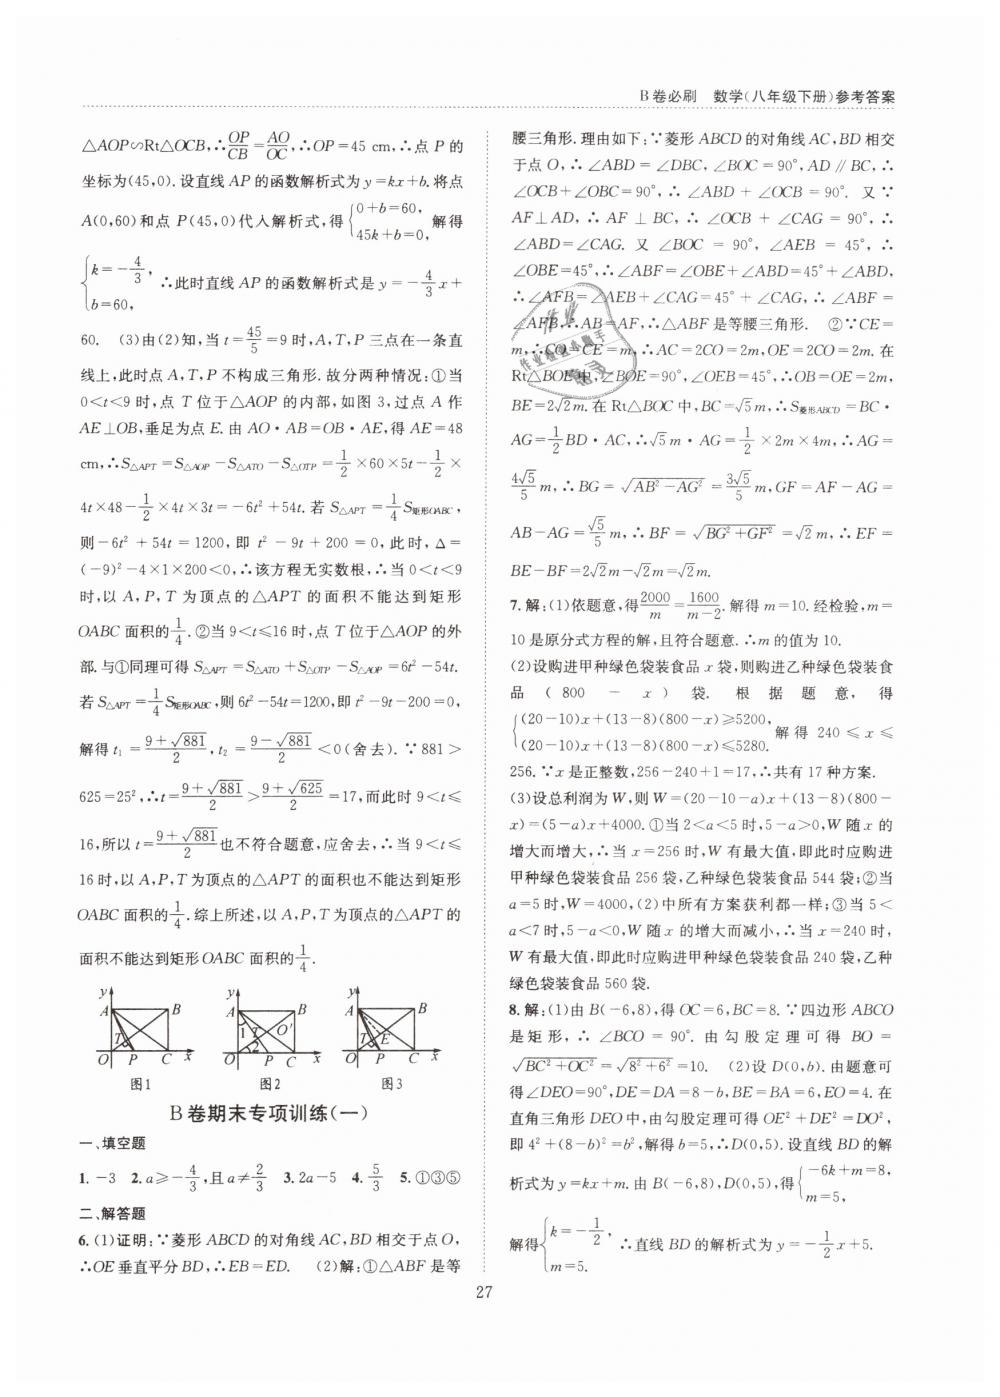 B卷必刷 数学(八年级下册)参考答案
△AOP∽Rt△OCB,∴OP/CB=AO/OC,∴OP=45 cm,∴点 P 的
坐标为(45,0).设直线 AP 的函数解析式为 y=kx+b.将点
A(0,60)和点 P(45,0)代入解析式,得{0+b=60, 45k+b=0,解得
{k=-4/3, b=60,∴此时直线 AP 的函数解析式是 y=-4/3x+
60. (3)由(2)知,当 t=45/5=9 时,A,T,P 三点在一条直
线上,此时点 A,T,P 不构成三角形.故分两种情况:①当
0<t<9 时,点 T 位于△AOP 的内部,如图 3,过点 A 作
AE⊥OB,垂足为点 E.由 AO·AB=OB·AE,得 AE=48
cm,∴S△APT=S△AOP-S△ATO-S△OTP=1/2×60×5t-1/2×
4t×48-1/2×4t×3t=-6t²+54t.若 S△APT=1/4S矩形OABC,
则-6t²+54t=1200,即 t²-9t+200=0,此时,Δ=
(-9)²-4×1×200<0,∴该方程无实数根,∴当 0<t<9
时,以 A,P,T 为顶点的△APT 的面积不能达到矩形
OABC 面积的1/4.②当 9<t≤16 时,点 T 位于△AOP 的外
部.与①同理可得 S△APT=S△ATO+S△OTP-S△AOP=6t²-54t.
若 S△APT=1/4S矩形OABC,则 6t²-54t=1200,即 t²-9t-200=0,
解得 t₁=(9+√881)/2,t₂=(9-√881)/2<0(舍去).∵881>
625=25²,∴t=(9+√881)/2>(9+√625)/2=17,而此时 9<t≤
16,所以 t=(9+√881)/2也不符合题意,应舍去,∴当 9<t≤
16 时,以 A,P,T 为顶点的△APT 的面积也不能达到矩形
OABC 面积的1/4.综上所述,以 A,P,T 为顶点的△APT 的
面积不能达到矩形 OABC 面积的1/4.
y A B T O P C x
y A B 1 T O′ 2 O P C x
y A B T E O P C x
图1 图2 图3
B卷期末专项训练(一)
一、填空题
1. -3 2. a≥-4/3,且 a≠2/3 3. 2a-5 4. 5/3 5. ①③⑤
二、解答题
6. (1)证明:∵菱形 ABCD 的对角线 AC,BD 相交于点 O,
∴OE 垂直平分 BD,∴EB=ED. (2)解:①△ABF 是等
腰三角形.理由如下:∵菱形 ABCD 的对角线 AC,BD 相交
于点 O,∴∠ABD=∠DBC,∠BOC=90°,AD∥BC,∴
∠OCB+∠OBC=90°,∴∠ABD+∠OCB=90°. 又∵
AF⊥AD,∴AF⊥BC,∴∠OCB+∠CAG=90°,∴
∠ABD=∠CAG. 又∠BOC=90°,∠AEB=45°,∴
∠OBE=45°,∴∠ABF=∠OBE+∠ABD=45°+∠ABD,
∴∠AFB=∠AEB+∠CAG=45°+∠CAG,∴∠ABF=
∠AFB,∴AB=AF,∴△ABF 是等腰三角形. ②∵CE=
m,∴CO=CE=m,∴AC=2CO=2m,OE=2CO=2m.在
Rt△BOE 中,∠BOE=90°,∠OEB=45°,∴OB=OE=2m,
BE=2√2m.在 Rt△BOC 中,BC=√5m,∴S菱形ABCD=BC·
AG=1/2BD·AC,∴√5m·AG=1/2×2m×4m,∴AG=
4√5/5m,∴BG=√(AB²-AG²)=3√5/5m,GF=AF-AG=
AB-AG=√5/5m,∴BF=√(BG²+GF²)=√2m,∴EF=
BE-BF=2√2m-√2m=√2m.
7. 解:(1)依题意,得2000/m=1600/(m-2).解得 m=10.经检验,m=
10 是原分式方程的解,且符合题意.∴m 的值为 10.
(2)设购进甲种绿色袋装食品 x 袋,则购进乙种绿色袋装食
品(800-x)袋.根据题意,得
{(20-10)x+(13-8)(800-x)≥5200, (20-10)x+(13-8)(800-x)≤5280.解得 240≤x≤
256.∵x 是正整数,256-240+1=17,∴共有 17 种方案.
(3)设总利润为 W,则 W=(20-10-a)x+(13-8)(800-
x)=(5-a)x+4000.①当 2<a<5 时,5-a>0,W 随 x 的
增大而增大,∴当 x=256 时,W 有最大值,即此时应购进
甲种绿色袋装食品 256 袋,乙种绿色袋装食品 544 袋;②当
a=5 时,W=4000,(2)中所有方案获利都一样;③当 5<
a<7 时,5-a<0,W 随 x 的增大而减小,∴当 x=240 时,
W 有最大值,即此时应购进甲种绿色袋装食品 240 袋,乙种
绿色袋装食品 560 袋.
8. 解:(1)由 B(-6,8),得 OC=6,BC=8.∵四边形 ABCO
是矩形,∴∠BCO=90°.由勾股定理可得 BO=
√(BC²+OC²)=√(8²+6²)=10. (2)设 D(0,b).由题意可
得∠DEO=90°,DE=DA=8-b,BE=BA=6,EO=4.在
直角三角形 DEO 中,由勾股定理可得 OE²+DE²=DO²,
即 4²+(8-b)²=b²,解得 b=5,∴D(0,5).设直线 BD 的解
析式为 y=kx+m.由 B(-6,8),D(0,5),得{-6k+m=8, m=5,
解得{k=-1/2, m=5.∴直线 BD 的解析式为 y=-1/2x+5.
27